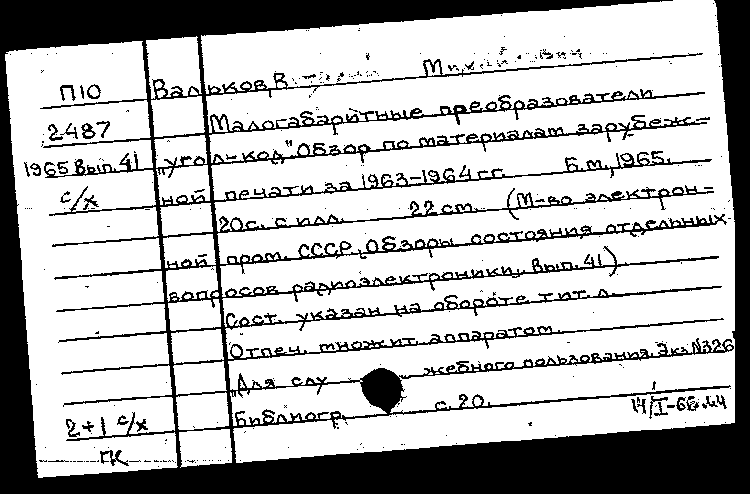 П10 Вальков, В Михайлович
2487 Малогабаритные преобразователи
1965 Вып. 41 „угол-код". Обзор по материалам зарубеж=
с/х ной печати за 1963-1964 гг. Б.м., 1965.
20с. с илл. 22 см. (М-во электрон=
ной пром. СССР, Обзоры состояния отдельных
вопросов радиоэлектроники, Вып. 41)
Сост. указан на обороте тит. л.
Отпеч. множит. аппаратом.
„Для служебного пользования. Экз. N326"
Библиогр. с. 20.
2+1 с/х
ПК